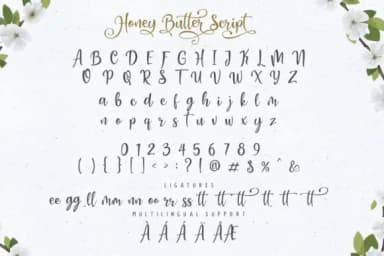 Honey Butter Script
A B C D E F G H I J K L M N
O P Q R S T U V W X Y Z
a b c d e f g h i j k l m
n o p q r s t u v w x y z
0 1 2 3 4 5 6 7 8 9
( ) { } [ ] < > : ? ! @ # $ % ^ &
LIGATURES
ee gg ll mm nn oo rr ss tt tt tt tt tt tt
MULTILINGUAL SUPPORT
À Á Â Ã Ä Å Æ